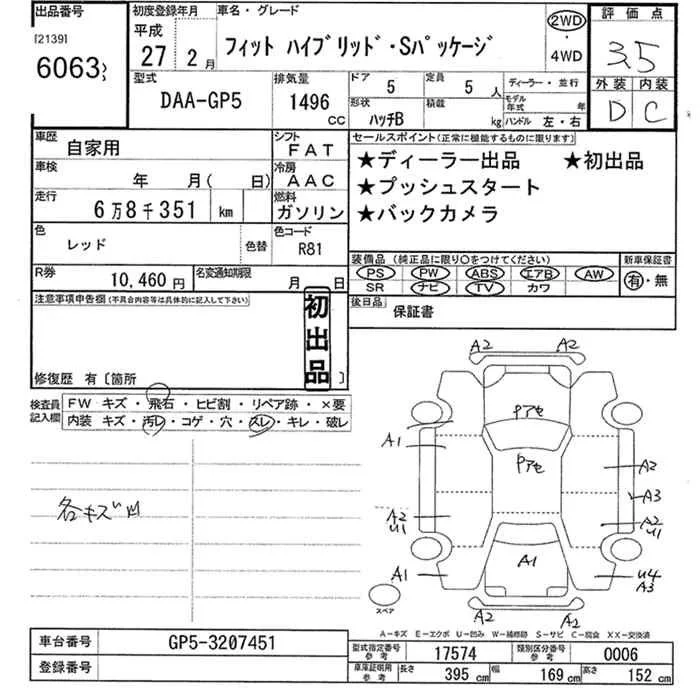 出品番号
[2139]
6063
初度登録年月
平成
27 2 月
車名・グレード
フィット ハイブリッド・Sパッケージ
2WD
・
4WD
評価点
3.5
外装 内装
D C
型式
DAA-GP5
排気量
1496
CC
ドア
5
定員
5 人
ディーラー・並行
形状
ハッチB
積載
kg
モデル年式 年
ハンドル 左・右
車歴
自家用
シフト
FAT
車検
年 月( 日)
冷房
AAC
走行
6万8千351 km
燃料
ガソリン
色
レッド
色替
色コード
R81
R券
10,460 円
名変通知期限
月 日
セールスポイント(正常に機能するものに限ります)
★ディーラー出品 ★初出品
★プッシュスタート
★バックカメラ
装備品(純正品に限り○をつけてください)
PS PW ABS エアB AW
SR ナビ TV カワ
新車保証書
有・無
後日品
保証書
注意事項申告欄(不具合内容等は具体的に記入して下さい)
初出品
修復歴 有〔箇所 〕
検査員記入欄
FW キズ・飛石・ヒビ割・リペア跡・×要
内装 キズ・汚レ・コゲ・穴・スレ・キレ・破レ
各キズ凹
A2 A2
Pアセ
A1
Pアセ
A2
A3
A2
U1
A2
U1
A1
A1
U4
A3
スペア
A2 A2
A-キズ E-エクボ U-凹み W-補修跡 S-サビ C-腐食 XX-交換済
車台番号
GP5-3207451
登録番号
型式指定番号
参考
17574
類別区分番号
参考
0006
車庫証明用
参考
長さ
395 cm
幅
169 cm
高さ
152 cm